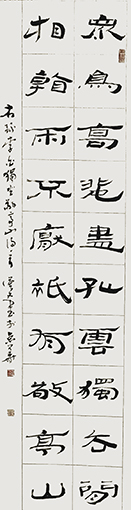 衆鳥高飛盡孤雲獨去閒
相看兩不厭祇有敬亭山
右錄李白獨坐敬亭山詩